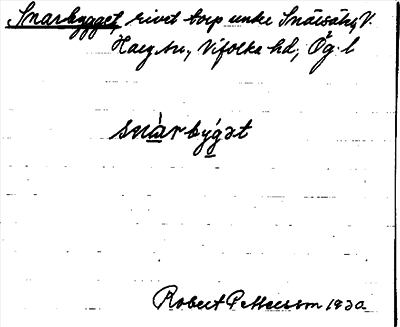 Snarbygget, rivet torp under Snåresätra, V.
Harg sn, Vifolka hd, Ög. l
snàrbýgət
Robert Pettersson 1930